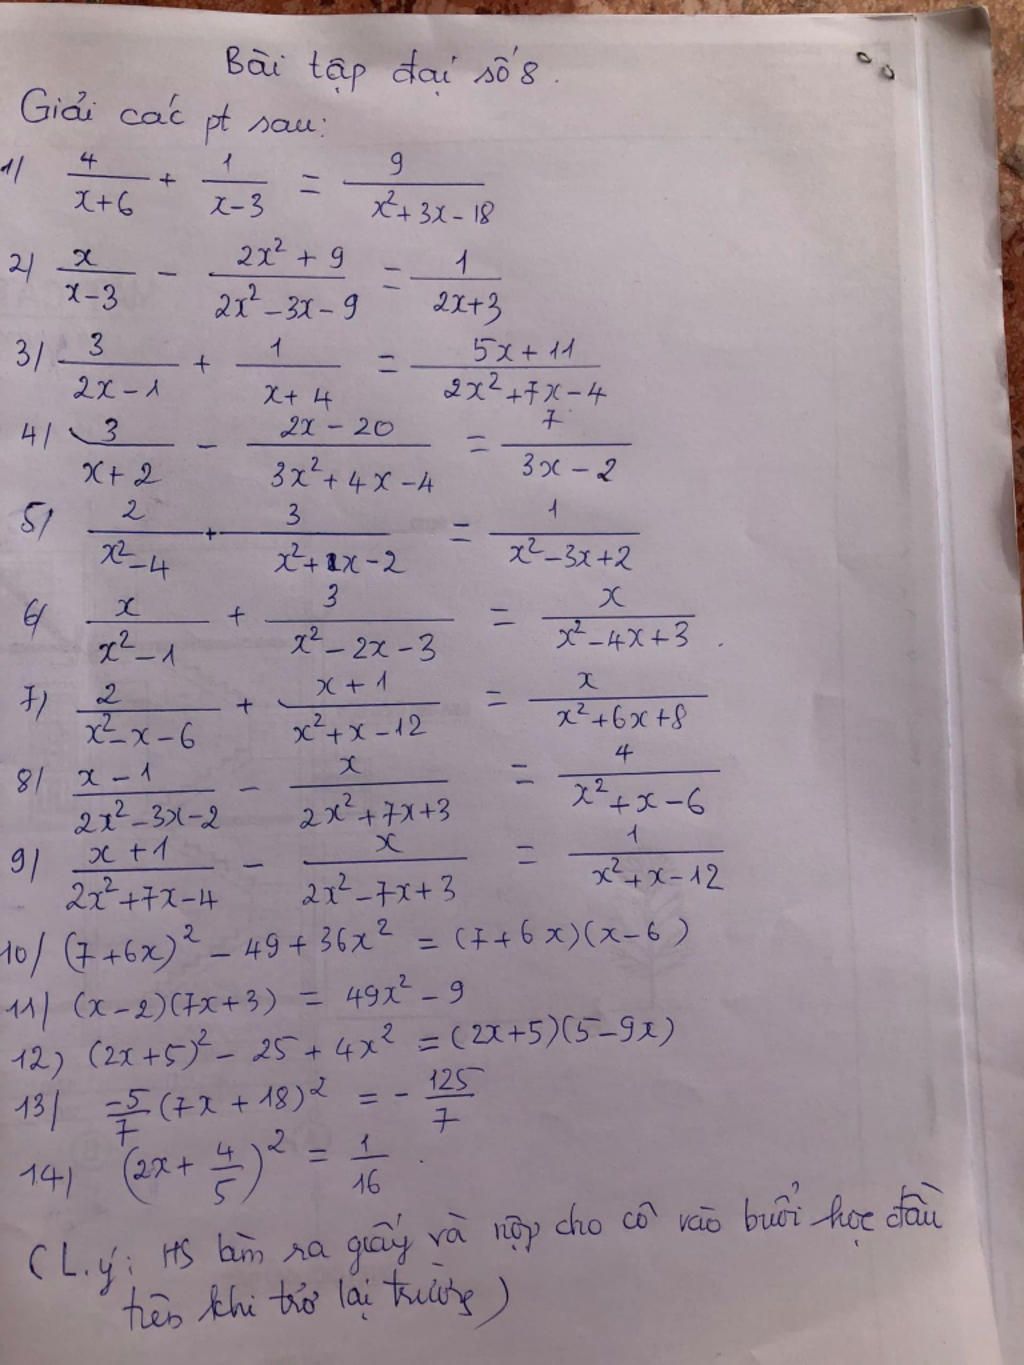 Bài tập đại số 8.
Giải các pt sau:
1/ 4/(x+6) + 1/(x-3) = 9/(x²+3x-18)
2/ x/(x-3) - (2x²+9)/(2x²-3x-9) = 1/(2x+3)
3/ 3/(2x-1) + 1/(x+4) = (5x+11)/(2x²+7x-4)
4/ 3/(x+2) - (2x-20)/(3x²+4x-4) = 7/(3x-2)
5/ 2/(x²-4) + 3/(x²+x-2) = 1/(x²-3x+2)
6/ x/(x²-1) + 3/(x²-2x-3) = x/(x²-4x+3).
7) 2/(x²-x-6) + (x+1)/(x²+x-12) = x/(x²+6x+8)
8/ (x-1)/(2x²-3x-2) - x/(2x²+7x+3) = 4/(x²+x-6)
9) (x+1)/(2x²+7x-4) - x/(2x²-7x+3) = 1/(x²+x-12)
10/ (7+6x)² - 49 + 36x² = (7+6x)(x-6)
11/ (x-2)(7x+3) = 49x² - 9
12) (2x+5)² - 25 + 4x² = (2x+5)(5-9x)
13/ -5/7 (7x+18)² = - 125/7
14) (2x + 4/5)² = 1/16.
(L.ý: HS làm ra giấy và nộp cho cô vào buổi học đầu
tiên khi trở lại trường)